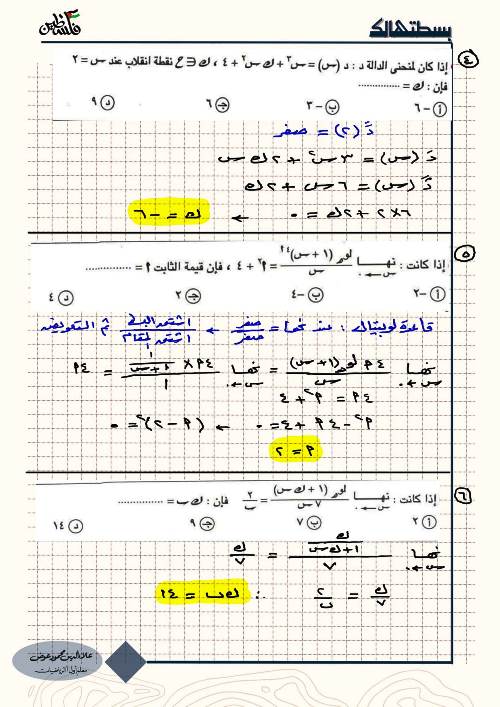 فلسطين
بسطتهالك
٤ إذا كان لمنحنى الدالة د : د (س) = س٣ + ك س٢ + ٤ ، ك ∈ ح نقطة انقلاب عند س = ٢
فإن : ك = ..............
أ -٦ ب -٣ ج ٦ د ٩
دً (٢) = صفر
دَ (س) = ٣ س٢ + ٢ ك س
دً (س) = ٦ س + ٢ ك
٦×٢ + ٢ك = ٠ ← ك = -٦
٥ إذا كانت : نهــا س←٠ لو (١ + س)٤أ / س = أ٢ + ٤ ، فإن قيمة الثابت أ = ..............
أ -٢ ب -٤ ج ٢ د ٤
قاعدة لوبيتال : عند نها = صفر / صفر ← اشتق البسط / اشتق المقام ثم التعويض
نهــا س←٠ ٤أ لو (١ + س) / س = نهــا س←٠ ٤أ × ١ / (١ + س) / ١ = ٤أ
٤أ = أ٢ + ٤
أ٢ - ٤أ + ٤ = ٠ ← (أ - ٢)٢ = ٠
أ = ٢
٦ إذا كانت : نهــا س←٠ لو (١ + ك س) / ٧ س = ٢ / ب فإن : ك ب = ..............
أ ٢ ب ٧ ج ٩ د ١٤
نهــا س←٠ ك / (١ + ك س) / ٧ = ك / ٧
ك / ٧ = ٢ / ب ∴ ك ب = ١٤
علاء الدين محمود عوض
معلم أول الرياضيات